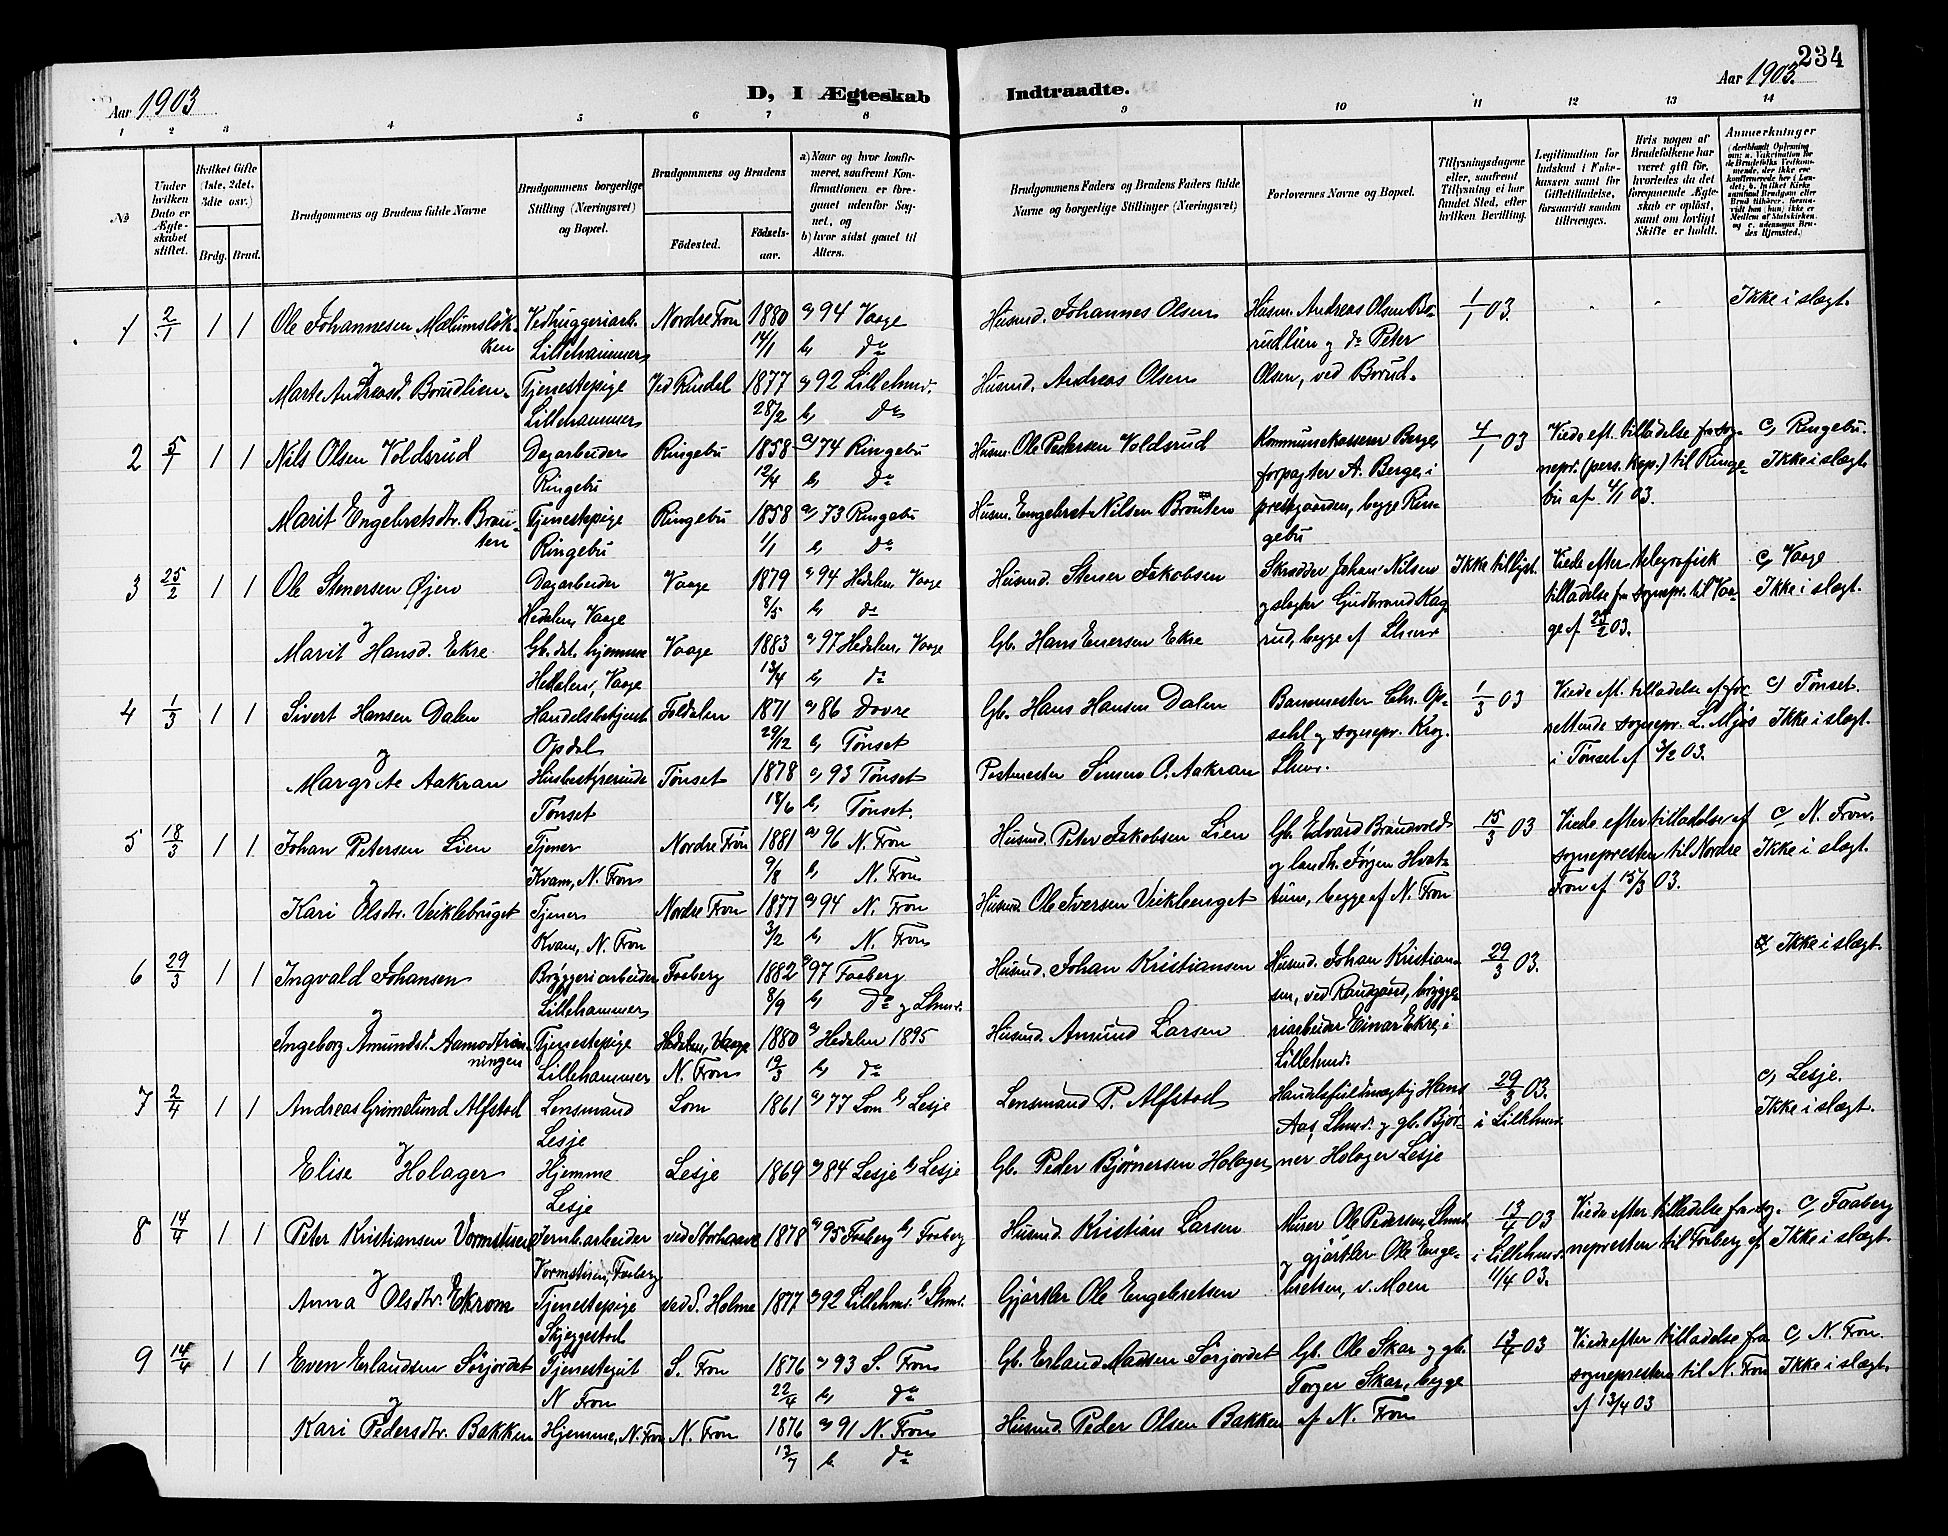 234
Aar 1903
D, I Ægteskab Indtraadte.
Aar 1903
1 2 3 4 5 6 7 8 9 10 11 12 13 14
No
Under hvilken Dato er Ægteskabet stiftet.
Hvilket Gifte (1ste, 2det, 3die osv.)
Brdg. Brud.
Brudgommens og Brudens fulde Navne
Brudgommens borgerlige Stilling (Næringsvei) og Bopæl.
Brudgommens og Brudens
Födested. Födselsaar.
a) Naar og hvor konfirmeret, saafremt Konfirmationen er foregaaet udenfor Sognet, og
b) hvor sidst gaaet til Alters.
Brudgommens Faders og Brudens Faders fulde Navne og borgerlige Stillinger (Næringsvei)
Forlovernes Navne og Bopæl.
Tillysningsdagene eller, saafremt Tillysning ei har fundet Sted, efter hvilken Bevilling.
Legitimation for Indskud i Enkekassen samt for Giftetilladelse, forsaavidt saadan tiltrænges.
Hvis nogen af Brudefolkene har været gift för, hvorledes da det foregaaende Ægteskab er oplöst, samt om lovligt Skifte er holdt.
Anmerkninger
1 2/1 1 1 Ole Johannesen Mælumsløkken Vedhuggeriarb. Lillehammer Nordre Fron 1880 14/1 a) 94 Vaage b) do Husmd. Johannes Olsen Husm. Andreas Olsen Borudlien og do Peter Olsen, ved Borud. 1/1 03. Ikke i slægt.
og
Marte Andreasd. Borudlien Tjenestepige Lillehammer Ved Rindal 1877 28/2 a) 92 Lillehmr. b) do Husmd. Andreas Olsen
2 5/1 1 1 Nils Olsen Voldsrud Dagarbeider Ringebu Ringebu 1858 12/4 a) 74 Ringebu b) do Husm. Ole Pedersen Voldsrud Kommunekasserer Berge, forpagter A. Berge i prestgaarden, begge Ringebu 4/1 03 Viede eft. tilladelse fra sognepr. (pers. kap.) til Ringebu af 4/1 03. c) Ringebu. Ikke i slægt.
og
Marit Engebretsdtr. Brauten Tjenestepige Ringebu Ringebu 1858 1/1 a) 73 Ringebu b) do Husm. Engebret Nilsen Bröuten
3 25/2 1 1 Ole Stenersen Øjen Dagarbeider Hedalen, Vaage Vaage 1879 8/5 a) 94 Hedalen, Vaage b) do Husmd. Stener Jakobsen Skrædder Johan Nilsen og slagter Gudbrand Kagrud, begge af Lhmr Ikke tillyst. Viede efter telegrafisk tilladelse fra sognepr. til Vaage af 25/2 03. c) Vaage Ikke i slægt.
og
Marit Hansd. Ekre Gb. dat. hjemme Hedalen, Vaage Vaage 1883 13/4 a) 97 Hedalen, Vaage b) do Gb. Hans Enersen Ekre
4 1/3 1 1 Sivert Hansen Dalen Handelsbetjent Opdal Foldalen 1871 29/12 a) 86 Dovre b) Tønset Gb. Hans Hansen Dalen Banemester Chr. Opsahl og sognepr. Krog. Lhmr. 1/3 03 Viede eft. tilladelse af forrettende sognepr. L. Mjøs i Tønset af 3/2 03. c) Tønset. Ikke i slægt.
og
Margrete Aakran Husbestyrerinde Tønset Tønset 1878 18/6 a) 93 Tønset b) Tønset. Postmester Simen O. Aakran
5 18/3 1 1 Johan Petersen Lien Tjener Kvam, N. Fron Nordre Fron 1881 9/8 a) 96 N. Fron b) N. Fron Husmd. Peter Jakobsen Lien Gb. Edvard Brandvold og landh. Jørgen Hvattum, begge af N. Fron 15/3 03 Viede efter tilladelse af sognepresten til Nordre Fron af 15/3 03. c) N. Fron. Ikke i slægt.
og
Kari Olsdtr. Veiklebruget Tjener Kvam, N. Fron Nordre Fron 1877 3/2 a) 94 N. Fron b) N. Fron Husmd. Ole Iversen Veiklenget
6 29/3 1 1 Ingvald Johansen Bryggeriarbeider Lillehammer Faaberg 1882 8/9 a) 97 Faaberg b) do og Lhmr. Husmd. Johan Kristiansen Husmd. Johan Kristiansen, ved Randgaard, bryggeriarbeider Einar Ekre, i Lillehmr. 29/3 03. Ikke i slægt.
Ingeborg Amundsd. Aamodtrønningen Tjenestepige Lillehammer Hedalen, Vaage N. Fron 1880 19/3 a) Hedalen 1895 b) do Husmd. Amund Larsen
7 2/4 1 1 Andreas Grimslund Alfstad Lensmand Lesje Lom 1861 a) 77 Lom b) Lesje Lensmand P. Alfstad Handelsfuldmægtig Hans Aas, Lhmr. og gb. Bjørner Holager Lesje 29/3 03. i Lillehmr. c) Lesje. Ikke i slægt.
og
Elise Holager Hjemme Lesje Lesje 1869 a) 84 Lesje b) Lesje Gb. Peder Bjørnersen Holager
8 14/4 1 1 Peter Kristiansen Vormstuen Jernb.arbeider Vormstuen, Faaberg ved Storhove 1878 a) 95 Faaberg b) Faaberg Husmd. Kristian Larsen Murer Ole Pedersen, Lhmr. og gjørtler Ole Engebretsen, v. Moen 13/4 03 i Lillehmr. 11/4 03. Viede efter tilladelse fra sognepresten til Faaberg af c) Faaberg Ikke i slægt.
og
Anna Olsdtr. Ekrom Tjenestepige Skjeggestad ved S. Holme 1877 a) 92 Lillehmr. b) Lhmr. Gjørtler Ole Engebretsen
9 14/4 1 1 Even Erlandsen Sørjordet Tjenestegut N Fron S. Fron 1876 22/4 a) 93 S. Fron b) do Gb. Erland Madsen Sørjordet Gb. Ole Skar og gb. Torger Skar, begge af N. Fron 13/4 03 Viede efter tilladelse fra sognepresten til N. Fron af 13/4 03 c) N. Fron. Ikke i slægt.
og
Kari Pedersdtr. Bakken Hjemme, N. Fron N. Fron 1876 13/7 a) 91 N. Fron b. do Husmd. Peder Olsen Bakken